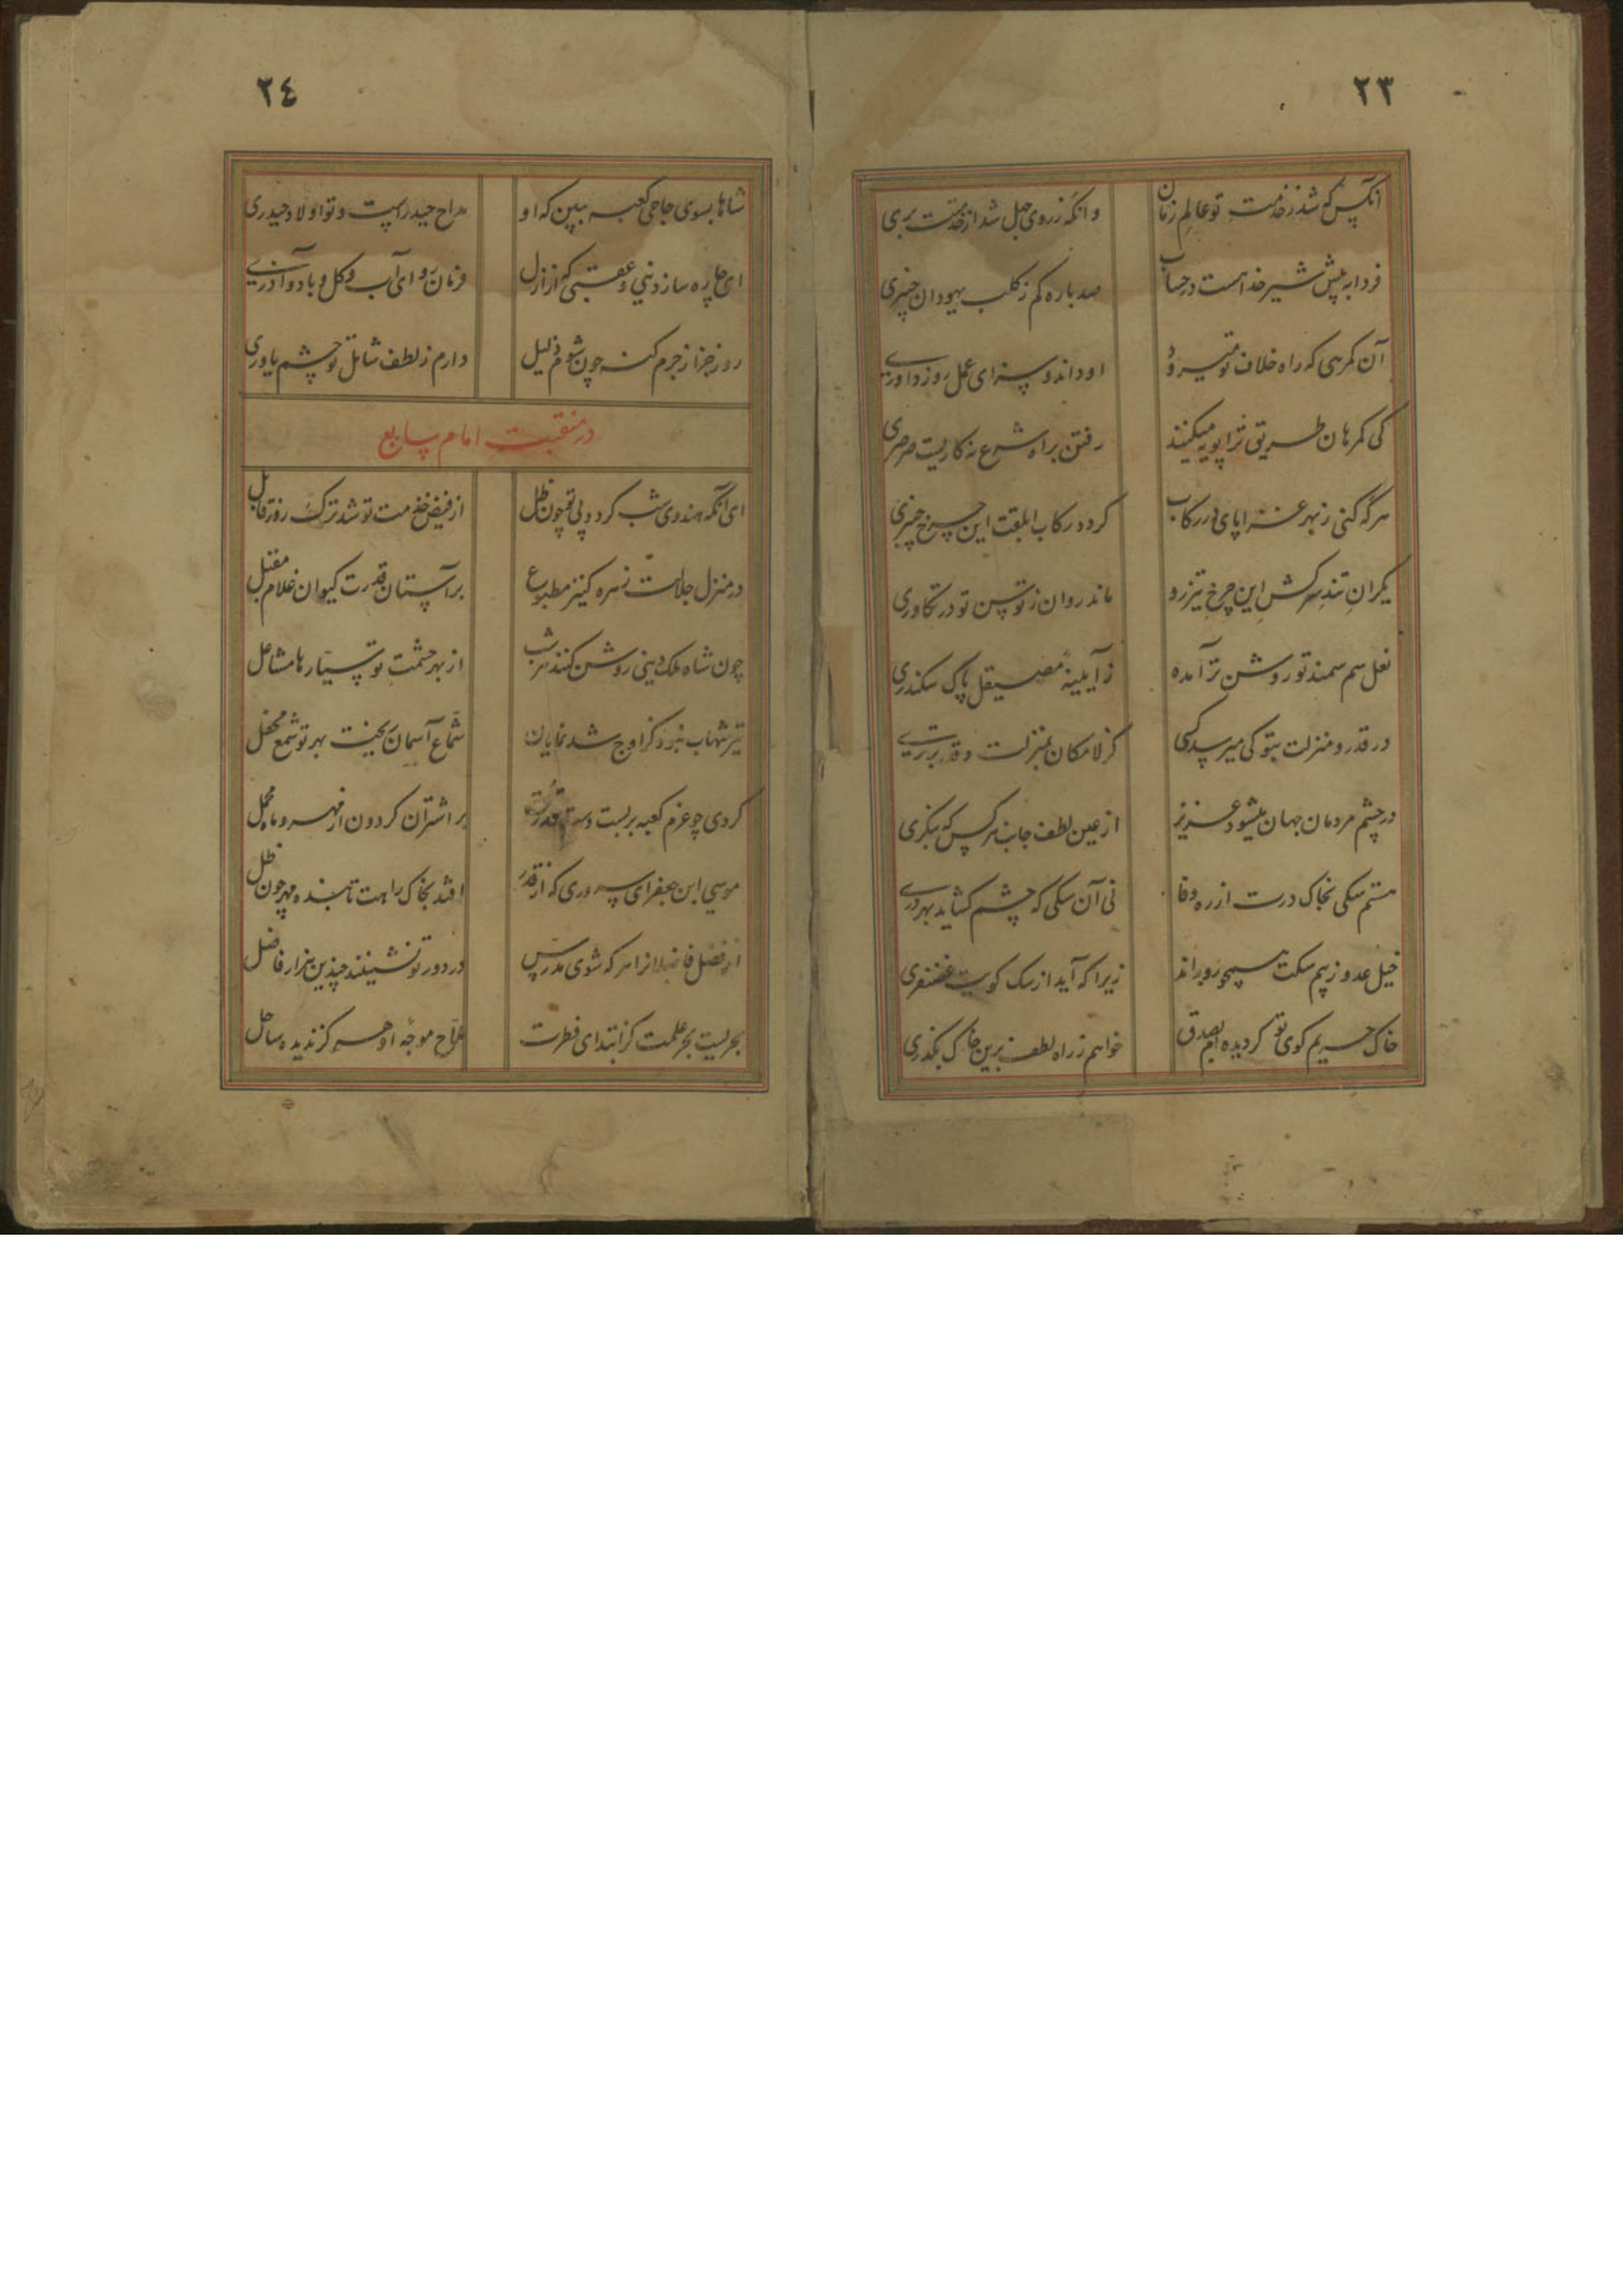 ٢٣
آنکس که شد ز خدمت تو عالم زمان
وانکه ز روی جهل شد از خدمتت بری
فردا به پیش شیر خدا هست در حساب
صد باره کم ز کلب یهودان خیبری
آن کمرهی که راه خلاف تو میرود
او داند و سزای عمل روز داوری
کی کمرهان طریق ترا پویه میکنند
رفتن براه شرع نه کاریست سرسری
هر که کنی ز بهر غزا پای در رکاب
کردد رکاب ابلقت این چرخ چنبری
یکران تند سرکش این چرخ تیزرو
ماند روان ز توسن تو در تکاوری
نعل سم سمند تو روشن تر آمده
ز آیینه مصیقل پاک سکندری
در قدر و منزلت بتو کی میرسد کسی
کز لامکان بمنزلت و قدر برتری
در چشم مردمان جهان میشود عزیز
از عین لطف جانب هر کس که بنکری
هستم سکی بخاک درت از ره وفا
نی آن سکی که چشم کشاید بهر دری
خیل عدو ز بیم سکت سیحو روبراند
زیرا که آید از سک کویت غضنفری
خاک حریم کوی تو کردیده ام بصدق
خواهم ز راه لطف برین خاک بکذری
٢٤
شاها بسوی حاجی کعبه ببین که او
مداح حیدرست و تو اولاد حیدری
ای چاره ساز دنیی و عقبی که از ازل
فرمان روای آب و کل و باد و آذری
روز جزا ز جرم کنه چون شوم ذلیل
دارم ز لطف شامل تو چشم یاوری
در منقبت امام سابع
ای آنکه هندوی شب کردد پی تو چون ظل
از فیض خدمت تو شد ترک روز قابل
در منزل جلالت زهره کنیز مطبوع
بر آستان قدرت کیوان غلام مقبل
چون شاه ملک دینی روشن کنند هر شب
از بهر حشمت تو سیارها مشاعل
تیر شهاب نبود کز اوج شد نمایان
شماع آسمان ریخت بهر تو شمع محفل
کردی چو عزم کعبه بر بست دست قدرت
بر اشتران کردون از مهر و ماه محمل
موسی ابن جعفر ای سروری که از قدر
افتد بخاک راهت تابنده مهر چون ظل
از فضل فاضلانرا هر که شوی مدرس
در دور تو نشینند چندین هزار فاضل
بحریست بحر علمت کز ابتدای فطرت
ملاح موجه او هرکز ندیده ساحل